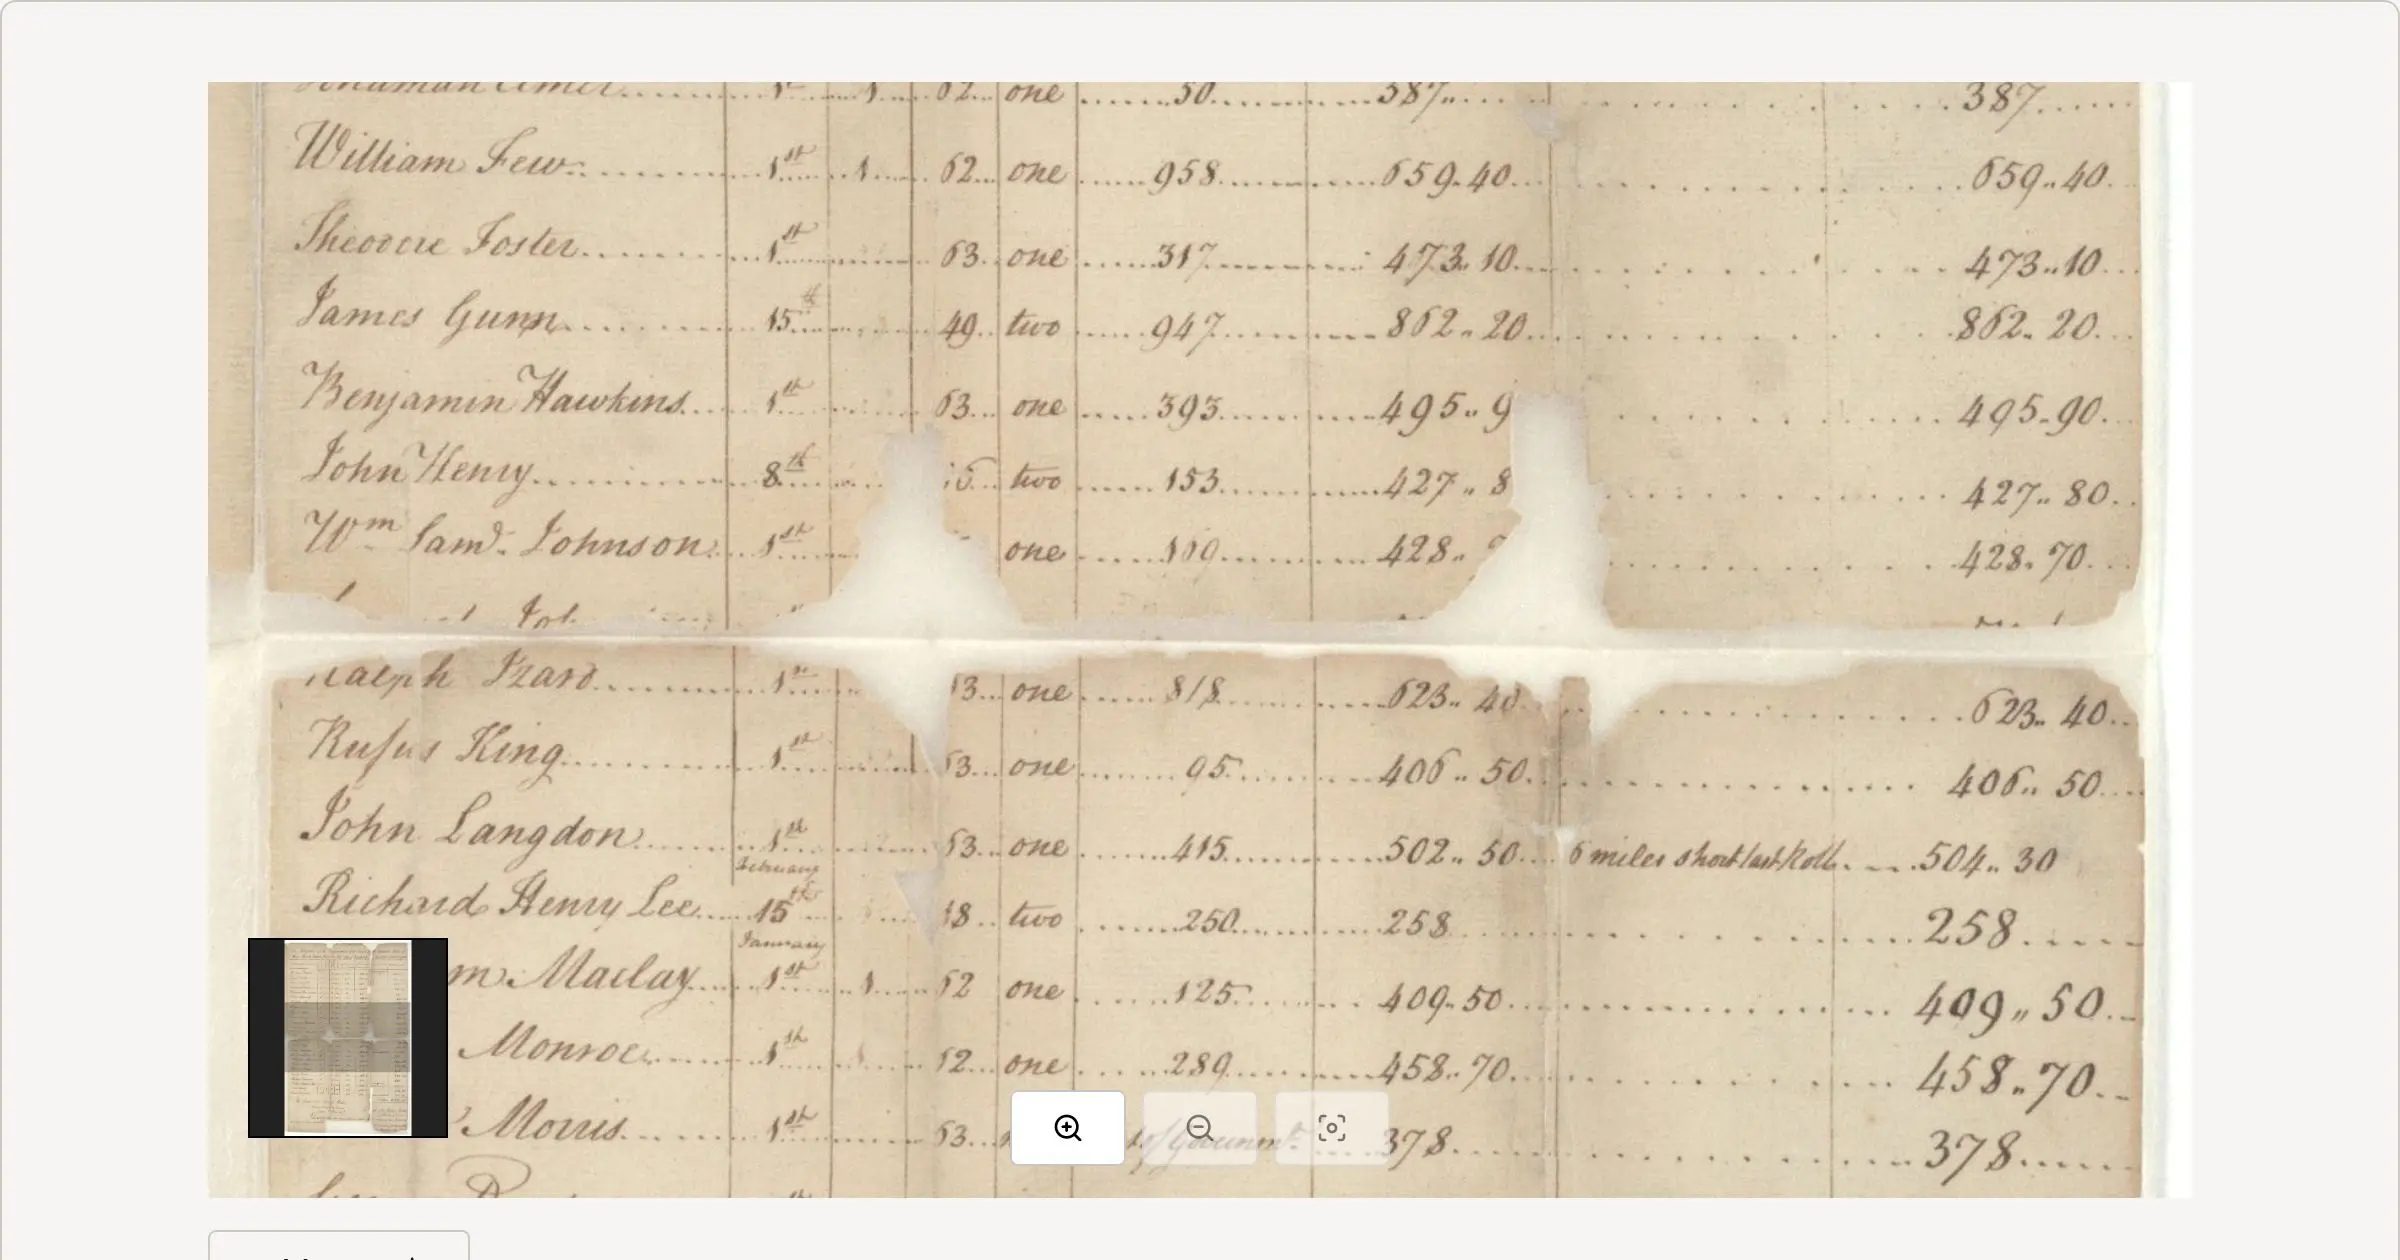 1st 1 62 one 50 387 387
William Few 1st 1 62 one 958 659.40 659..40
Theodore Foster 1st 63 one 317 473..10 473..10
James Gunn 15th 49 two 947 862..20 862..20
Benjamin Hawkins 1st 63 one 393 495..9 495.90
John Henry 8th two 153 427..8 427..80
Wm Saml. Johnson 1st one 428.. 428.70
Izard 1st 3 one 818 623..40 623..40
Rufus King 1st 63 one 95 406..50 406..50
John Langdon 1st 63 one 415 502..50 6 miles short last Roll 504..30
February
Richard Henry Lee 15th 18 two 250 258 258
January
m Maclay 1st 1 62 one 125 409.50 409..50
Monroe 1st 62 one 289 458.70 458..70
Morris 1st 63 of Governmt. 378 378